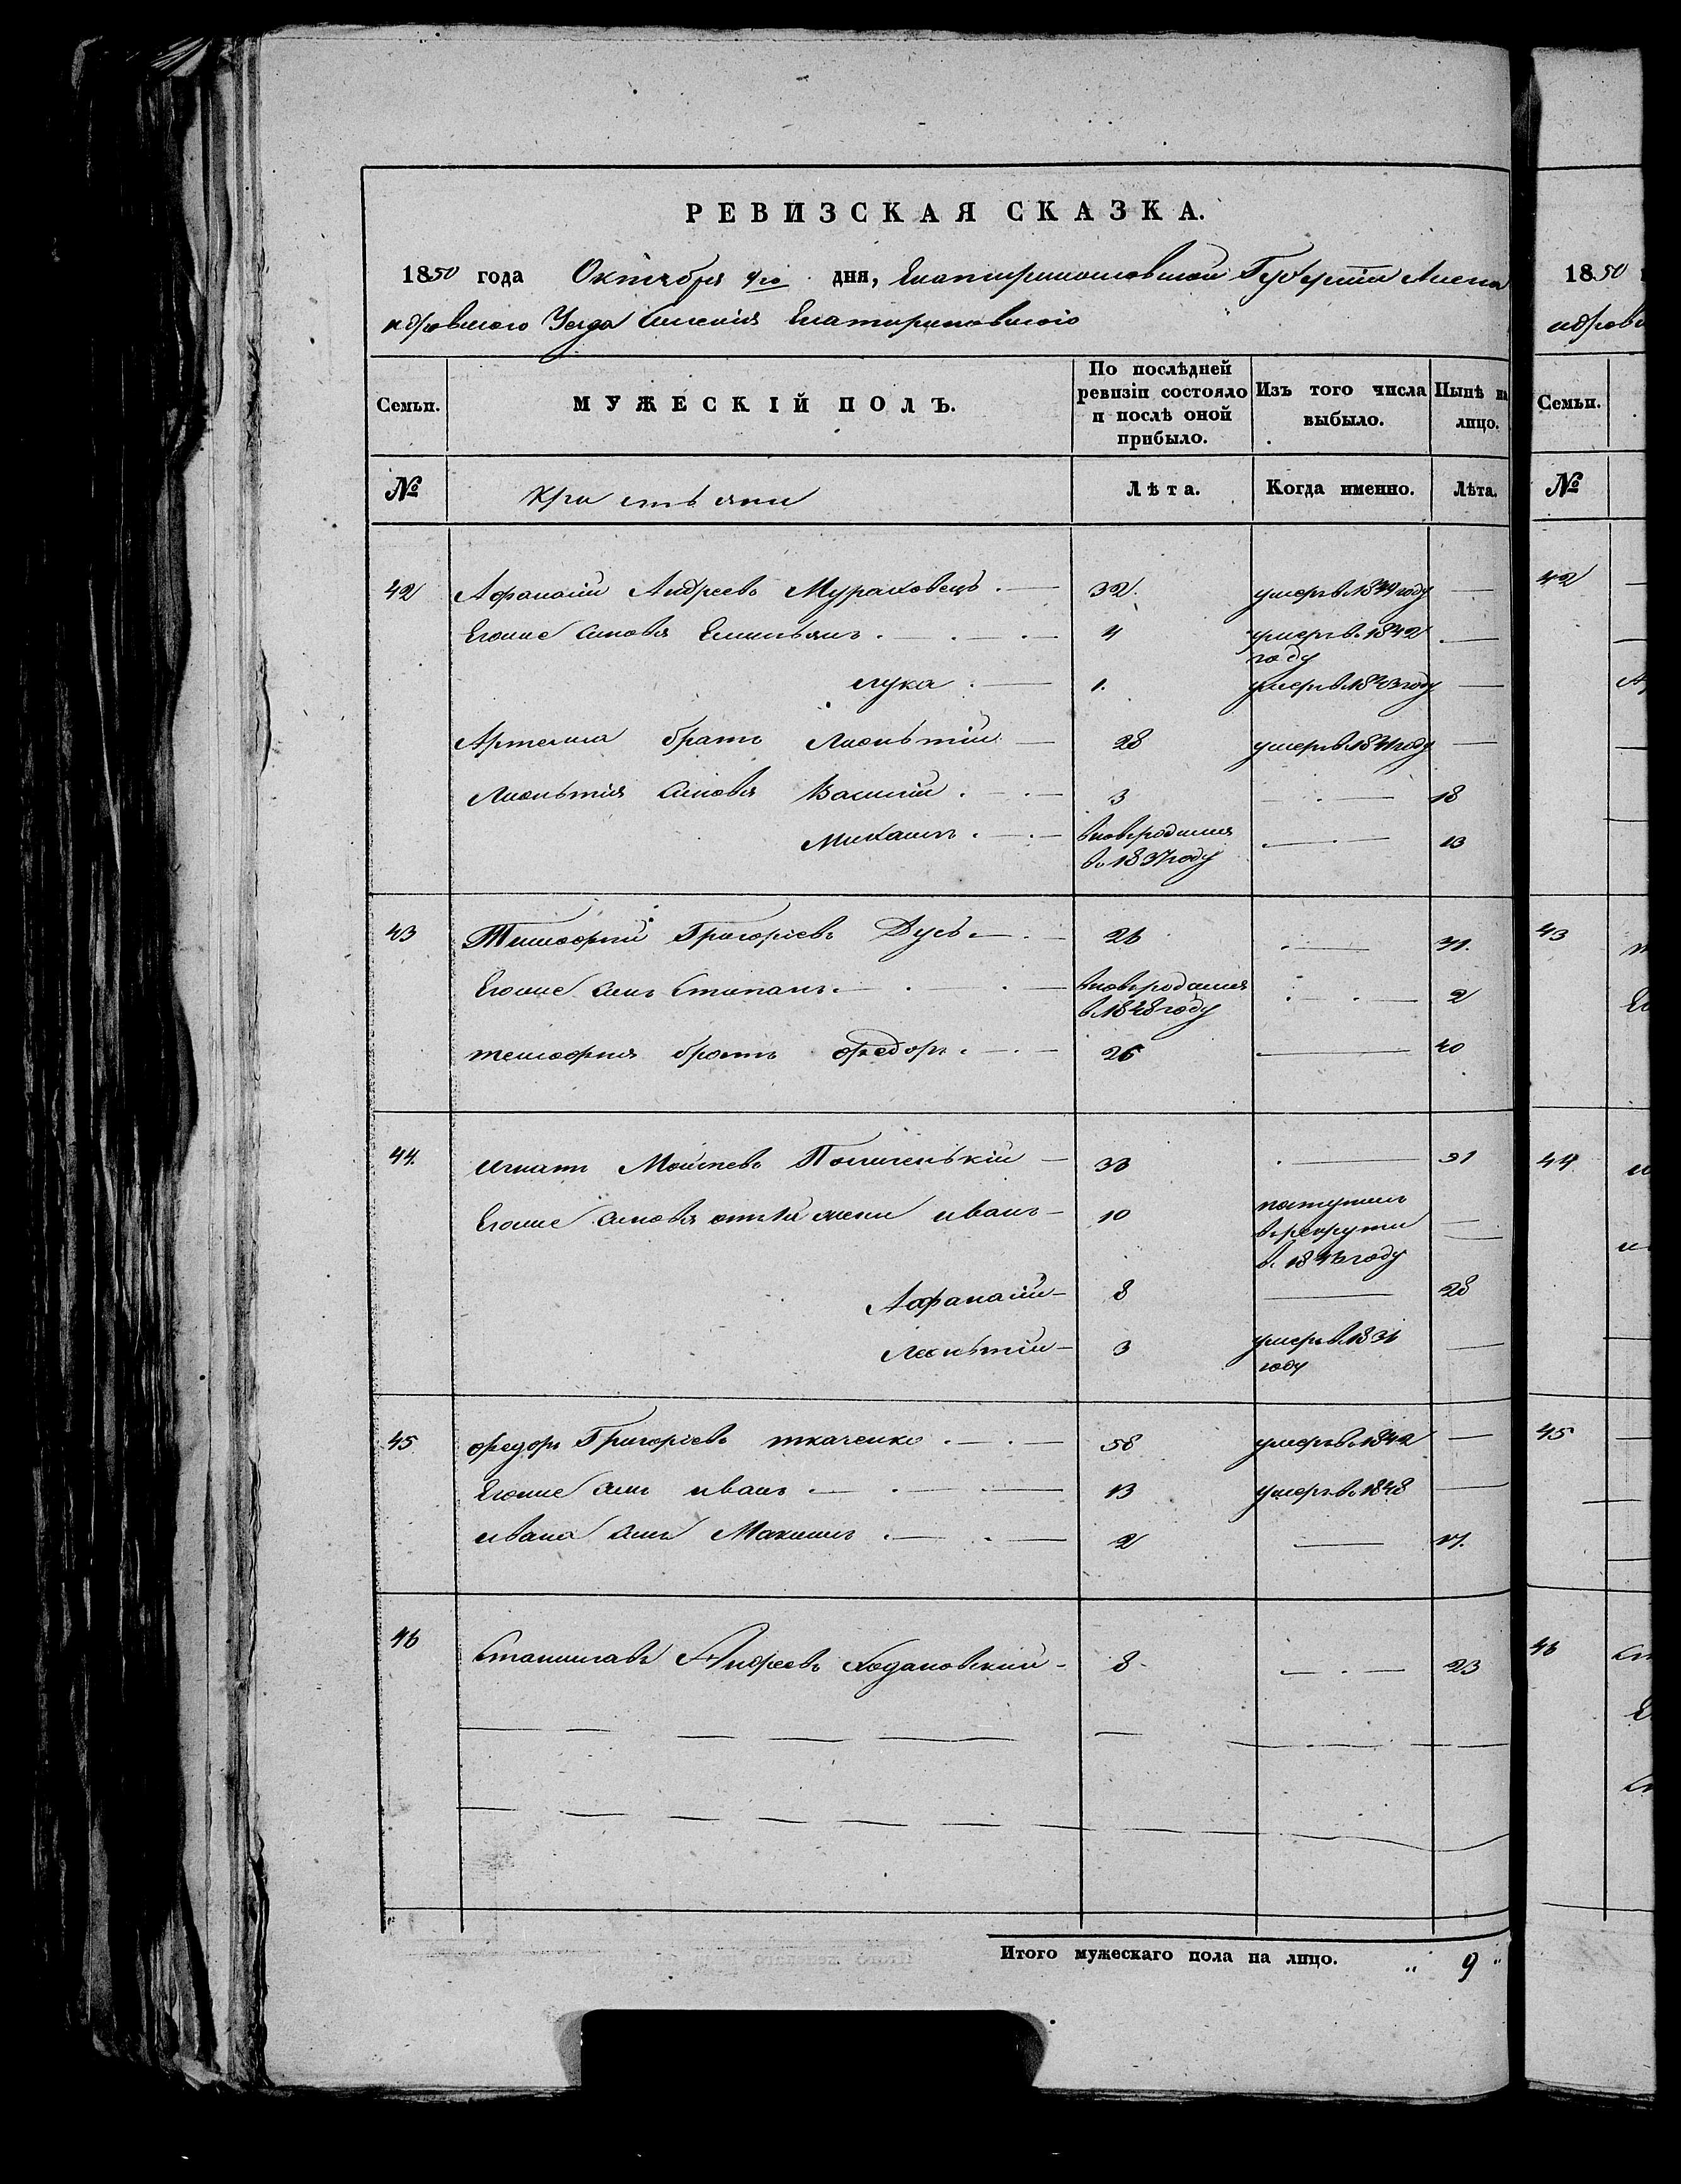 РЕВИЗСКАЯ СКАЗКА.
1850 года Октября дня, Екатеринославской Губернии Алекса
ндровского Уезда Имения Екатериновского
Семьи. МУЖЕСКІЙ ПОЛЪ. По послѣдней ревизіи состояло и послѣ оной прибыло. Изъ того числа выбыло. Нынѣ на лицо.
№ Крестьяне Лѣта. Когда именно. Лѣта.
42 Афанасій Андреевъ Мураховецъ 32. умеръ в. году
Егоже сыновья Емельянъ 4 умеръ в. 1842 году
лука 1. умеръ в. 1843 году
братъ Леонътій 28 умеръ в. 1841 году
Леонътія сыновья Василій 3 18
Михаилъ вновьродился в. 1837 году 13
43 Григоріевъ Дусь 26 41.
Егоже сынъ Степанъ вновьродился в. 1848 году 2
братъ федоръ 25 40
44. игнатъ Поличенькій 33
Егоже сыновья жены иванъ 10 поступилъ в рекруты в. году
Афанасій 8 28
Леонътій 3 умеръ в. году
45 федоръ Григоріевъ ткаченко 58 умеръ в. 1842
Егоже сынъ иванъ 13 умеръ в. 1848
ивана сынъ Максимъ 2 17.
46 Станиславъ Андреевъ Ходановскій 8 23
Итого мужескаго пола на лицо. „ 9 „
1850
ндровс
Семьи.
№
42
43
44
45
46